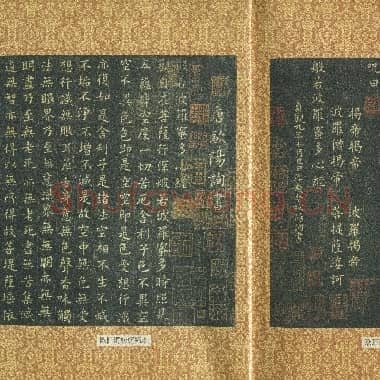 咒曰
揭帝揭帝 波羅揭帝
波羅僧揭帝 菩提薩婆訶
般若波羅蜜多心經
貞觀九年十月
唐歐陽詢書
波羅蜜多心經
觀自在菩薩行深般若波羅蜜多時照見
五蘊皆空度一切苦厄舍利子色不異空
空不異色色即是空空即是色受想行識
亦復如是舍利子是諸法空相不生不滅
不垢不淨不增不減是故空中無色無受
想行識無眼耳鼻舌身意無色聲香味觸
法無眼界乃至無意識界無無明亦無無
明盡乃至無老死亦無老死盡無苦集滅
道無智亦無得以無所得故菩提薩埵依
Shufawang.CN